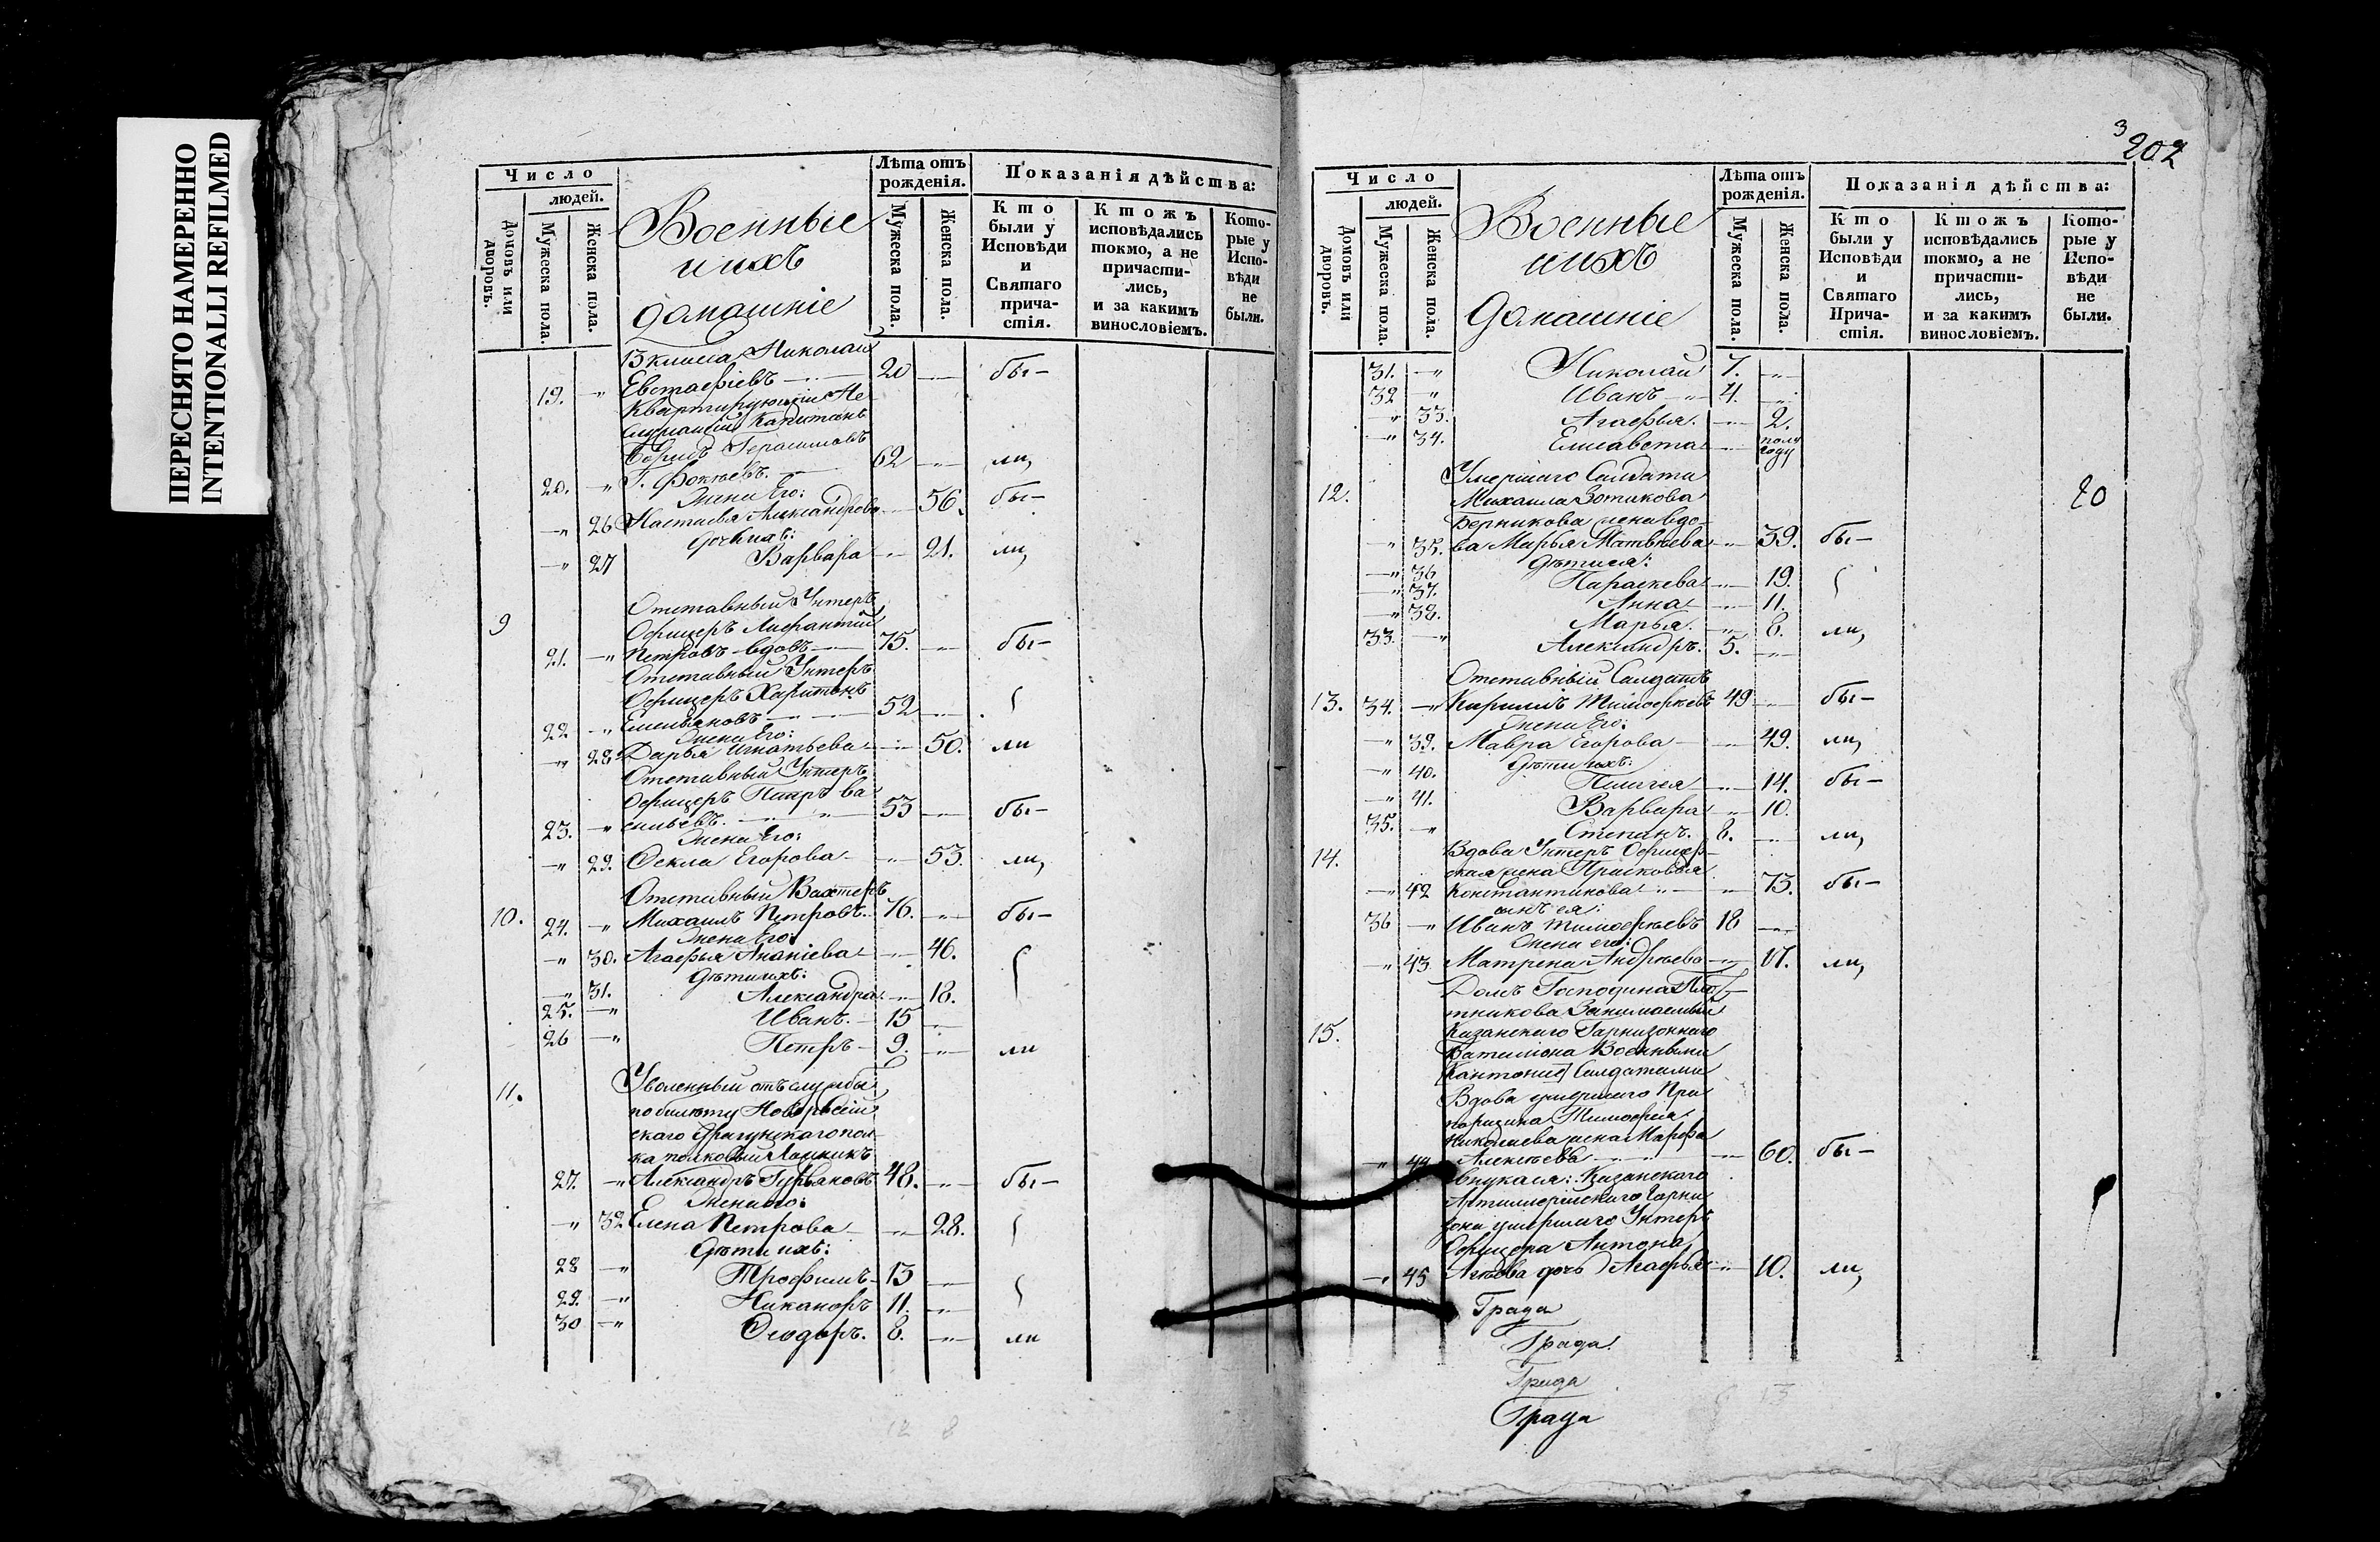 ПЕРЕСНЯТО НАМЕРЕННО
INTENTIONALLI REFILMED
Число
людей.
Домовъ или дворовъ.
Мужеска пола.
Женска пола.
Военные
и ихъ
домашніе
Лѣта отъ рожденія.
Мужеска пола.
Женска пола.
Показанія дѣйства:
Кто были у Исповѣди и Святаго причастія.
Ктожъ исповѣдались токмо, а не причастились, и за какимъ винословіемъ.
Которые у Исповѣди не были.
13 класса Николай
19. -" Евстафіевъ 20 -"- бы-
Квартирующій Не
служащій Капитанъ
Герасимовъ
20. -" Г. Фокѣевъ. 62 -"- ли,
Жена Его:
-" 26 Настасья Александрова -"- 56. бы-
Дочь ихъ:
-" 27 Варвара -"- 21. ли,
9 Отставный Унтеръ
Офицеръ
21. -" Петровъ вдовъ 75. -"- бы-
Отставный Унтеръ
Офицеръ Харитонъ
22 -" Емельяновъ 52 -"-
Жена Его:
-" 28 Дарья Игнатьева -"- 50. ли
Отставный Унтеръ
Офицеръ Петръ Ва
23. -" сильевъ. 53 -"- бы-
Жена Его:
-" 29. Ѳекла Егорова -"- 53. ли,
Отставный Вахтеръ
10. 24. -" Михаилъ Петровъ 76. -"- бы-
Жена Его:
-" 30. Агафья Ананіева -"- 46.
Дѣти ихъ:
-" 31. Александра -"- 18.
25. -" Иванъ. 15 -"-
26 -" Петръ 9. -"- ли
11. Уволенный отъ службы
по билету Новороссій
скаго Драгунскаго пол
ка полковый
27. -" Александръ Гурьяновъ 48. -"- бы-
Жена его:
-" 32 Елена Петрова -"- 28.
Дѣти ихъ:
28 -" Трофимъ 13 -"-
29. -" Никаноръ 11. -"-
30 -" Ѳеодоръ. 8. -"- ли
3
202
Число
людей.
Домовъ или дворовъ.
Мужеска пола.
Женска пола.
Военные
и ихъ
домашніе
Лѣта отъ рожденія.
Мужеска пола.
Женска пола.
Показанія дѣйства:
Кто были у Исповѣди и Святаго Причастія.
Ктожъ исповѣдались токмо, а не причастились, и за какимъ винословіемъ.
Которые у Исповѣди не были.
31. -" Николай 7. -"-
32 -" Иванъ 4. -"-
-" 33. Агафья. -"- 2.
-" 34. Елисавета -"- полу году
Умершаго Салдата
12. Михаила Зотикова 20
Берникова жена вдо-
-" 35. ва Марья Матвѣева -"- 39. бы-
Дѣти ея:
-" 36 Параскева -"- 19.
-" 37. Анна -"- 11.
-" 38. Марья. -"- 8. ли,
33. -" Александръ. 5. -"-
Отставный Салдатъ
13. 34. -" Кирилъ Тимофѣевъ 49 -"- бы-
Жена Его:
-" 39. Мавра Егорова -"- 49. ли,
Дѣти ихъ:
-" 40. Пелагея -"- 14. бы-
-" 41. Варвара -"- 10.
35. -" Степанъ. 8. -"- ли,
14. Вдова Унтеръ Офицер-
ская жена Прасковья
-" 42 Константинова -"- 73. бы-
сынъ ея:
36 -" Иванъ Тимофѣевъ 18 -"-
Жена его:
-" 43 Матрена Андрѣева -"- 17. ли,
Домъ Господина Пло-
тникова Занимаемый
15. Казанскаго Гарнизоннаго
Баталіона Военными
Кантонис] Салдатами
Вдова умершаго Пра
порщика Тимофея
Николаева жена Марфа
-" 44 Алексѣева -"- 60. бы-
внука ея: Казанскаго
Артиллерійскаго Гарни
зона умершаго Унтеръ
Офицера Антона
-" 45 дочь Агафья -"- 10. ли,
Града
Града
Града
Града
12 8
13